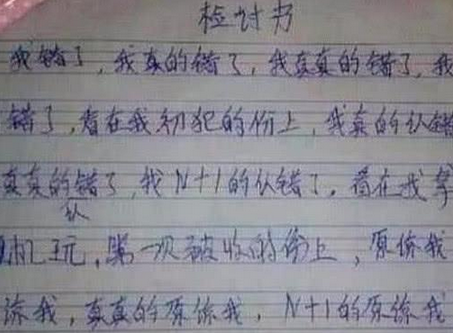 检讨书
我错了,我真的错了,我真真的错了,我
错了,看在我初犯的份上,我真的认错
真真的认错了,我N+1的认错了,看在我拿
机玩,第一次被收的份上,原谅我
谅我,真真的原谅我,N+1的原谅我